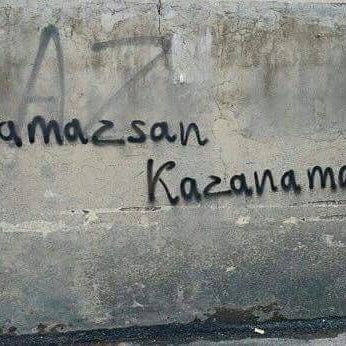 AZ
amazsan
Kazanama